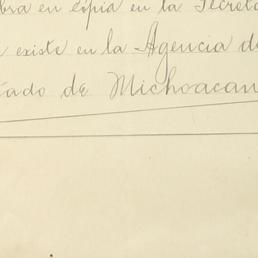 bra en copia en la Secreta
existe en la Agencia de
tado de Michoacan